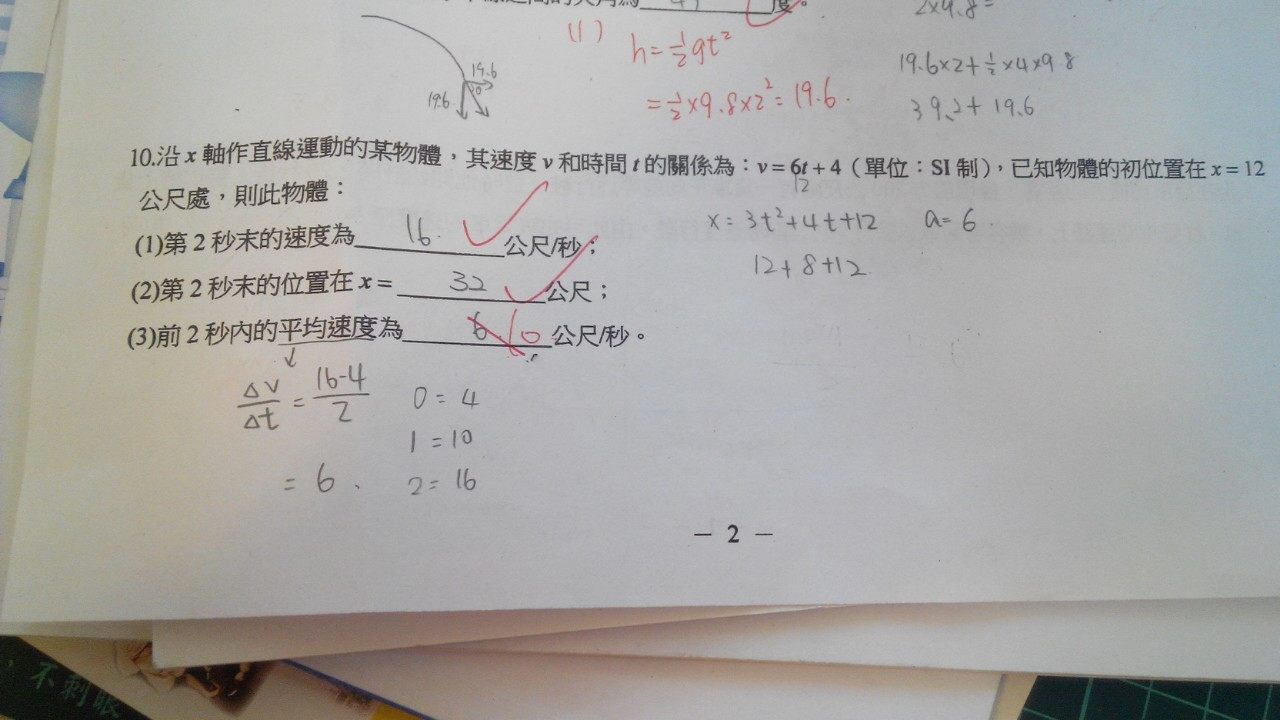 度。
2×9.8=
(1) h=½gt²
=½×9.8×2²=19.6.
19.6×2+½×4×9.8
39.2+19.6
19.6
19.6
10.沿 x 軸作直線運動的某物體，其速度 v 和時間 t 的關係為：v = 6t + 4（單位：SI 制），已知物體的初位置在 x = 12
12
公尺處，則此物體：
x=3t²+4t+12 a=6
(1)第 2 秒末的速度為 16. 公尺/秒；
12+8+12
(2)第 2 秒末的位置在 x = 32 公尺；
(3)前 2 秒內的平均速度為 6. 10 公尺/秒。
Δv/Δt = 16-4/2
0=4
1=10
= 6.
2=16
— 2 —
不刺眼